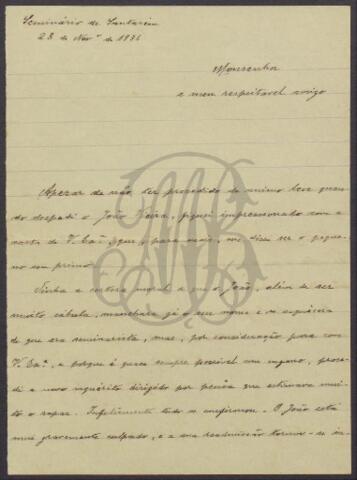 Seminário de Santarem
28 de Nov.º de 1936
Monsenhor
e meu respeitavel amigo
Apezar de não ter procedido de animo leve quan
do despedi o João Vieira, fiquei impressionado com a
carta de V. Ex.ª, que, para mais, me dizia ser o peque
no seu primo.
Tinha a certeza moral de que o João, além de ser
muito cábula, manchara já o seu nome e se esquecera
de que era seminarista, mas, por consideração para com
V. Ex.ª, e porque é quasi sempre possivel um engano, proce
di a novo inquérito dirigido por pessôa que estimava mui
to o rapaz. Infelizmente tudo se confirmou. O João está
mui gravemente culpado, e a sua readmissão tornou-se in-